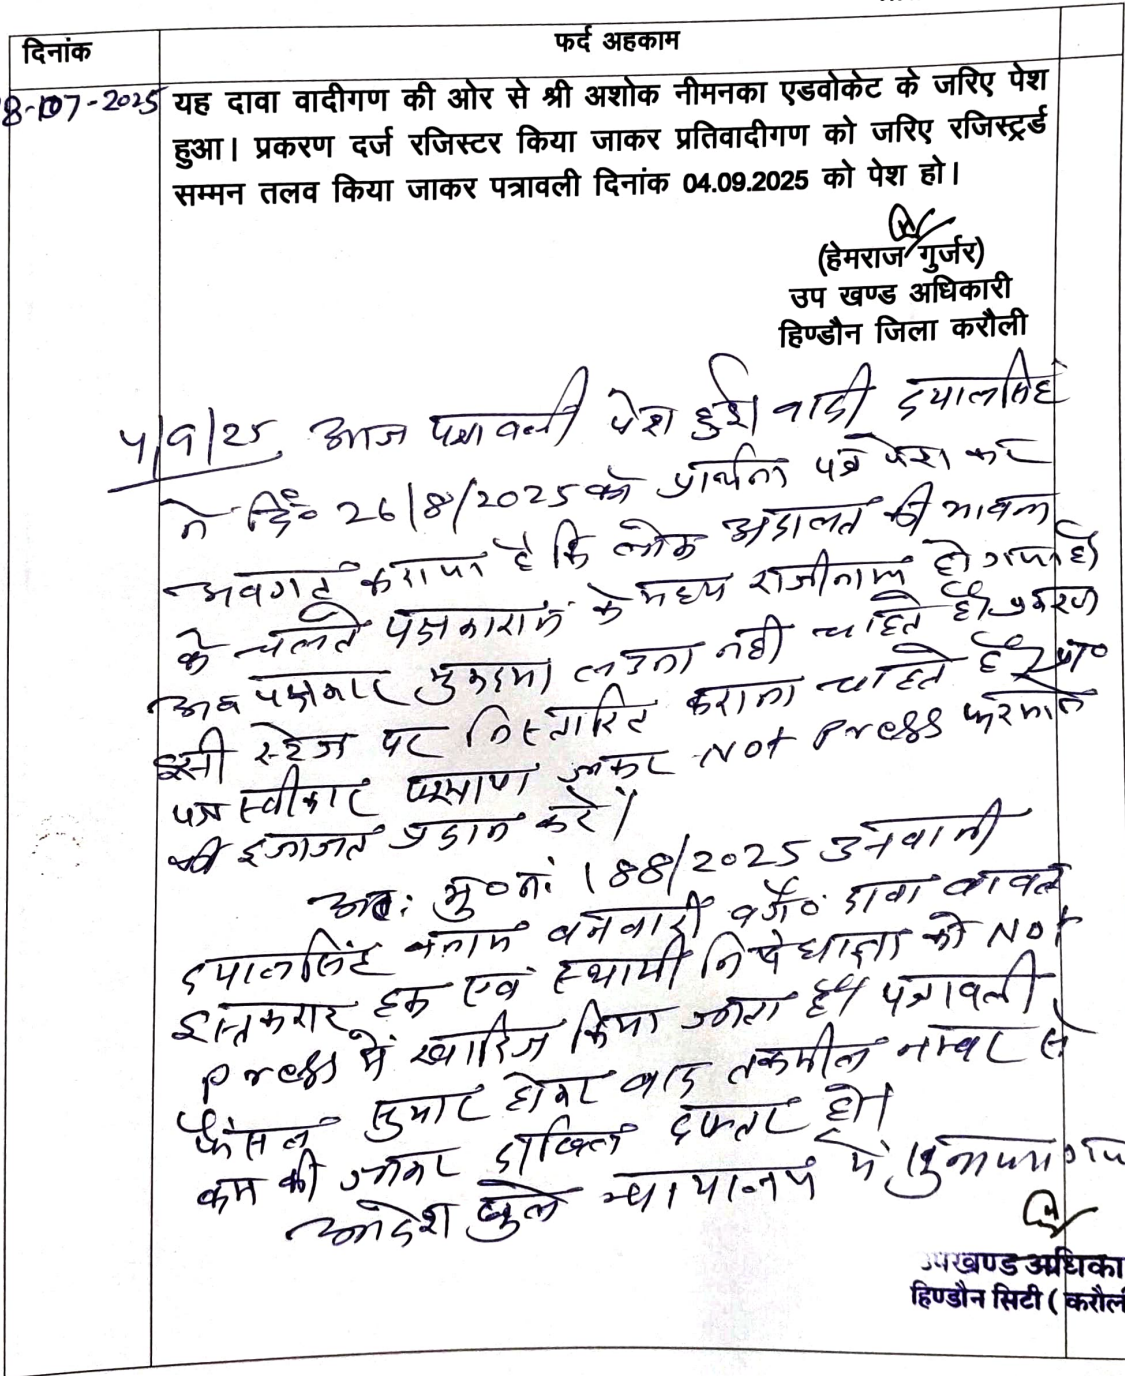 दिनांक
फर्द अहकाम
8-07-2025 यह दावा वादीगण की ओर से श्री अशोक नीमनका एडवोकेट के जरिए पेश
हुआ। प्रकरण दर्ज रजिस्टर किया जाकर प्रतिवादीगण को जरिए रजिस्ट्रर्ड
सम्मन तलव किया जाकर पत्रावली दिनांक 04.09.2025 को पेश हो।
(हेमराज गुर्जर)
उप खण्ड अधिकारी
हिण्डौन जिला करौली
4/9/25 आज पत्रावली पेश हुई। वादी दयालसिंह
ने दि० 26/8/2025 को प्रार्थना पत्र पेश कर
अवगत कराया है कि लोक अदालत की भावना
के चलते पक्षकारान के मध्य राजीनामा हो गया है
अब पक्षकार मुकदमा लडना नही चाहते है। प्रकरण
इसी स्टेज पर निस्तारित कराना चाहते है। प्रा०
पत्र स्वीकार फरमाया जाकर Not Press फरमाने
की इजाजत प्रदान करे।
अतः मु०नं० 188/2025 उनवानी
दयालसिंह बनाम बनवारी वगै० दावा बाबत
इस्तकरार हक एवं स्थायी निषेधाज्ञा को Not
Press में खारिज किया जाता है। पत्रावली
फैसल सुमार होकर बाद तकमील नम्बर से
कम की जाकर दाखिल दफ्तर हो।
आदेश खुले न्यायालय में सुनाया गया
उपखण्ड अधिका
हिण्डौन सिटी (करौली